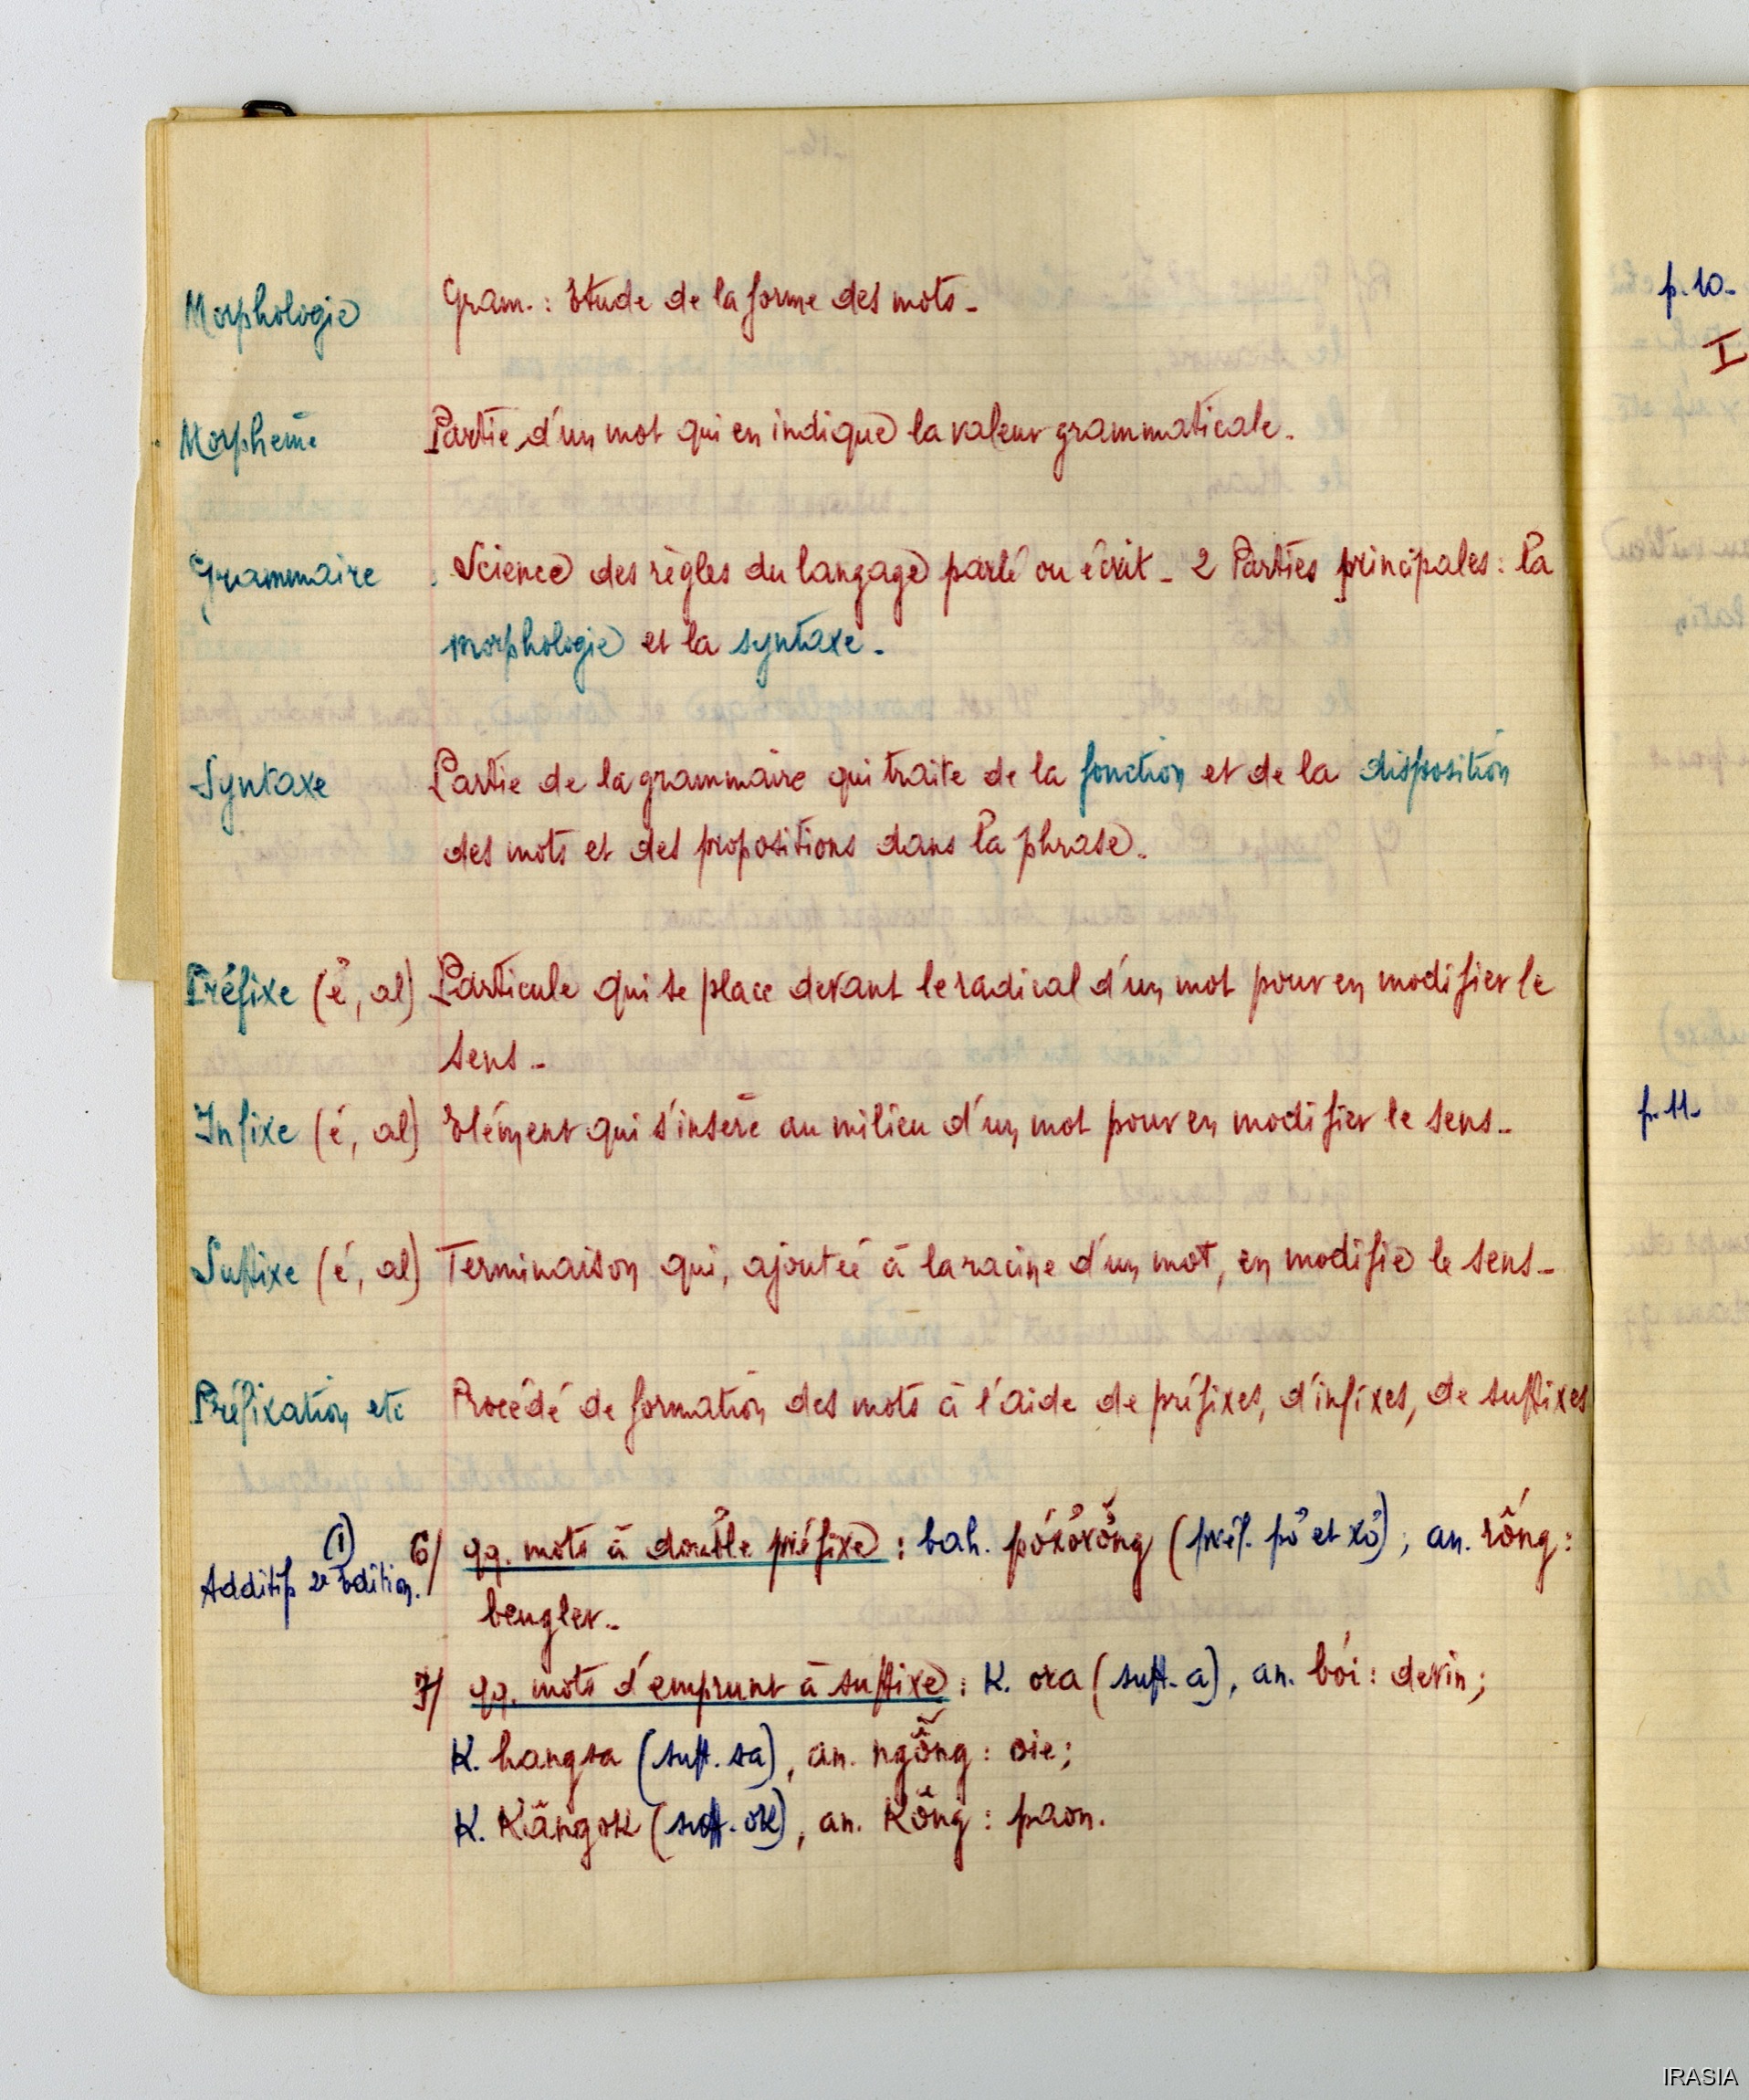 Morphologie Gram. : Etude de la forme des mots -
p. 10 -
I
Morphème Partie d'un mot qui en indique la valeur grammaticale.
Grammaire : Science des règles du langage parlé ou écrit - 2 Parties principales : la
morphologie et la syntaxe.
Syntaxe Partie de la grammaire qui traite de la fonction et de la disposition
des mots et des propositions dans la phrase.
Préfixe (é, al) Particule qui se place devant le radical d'un mot pour en modifier le
sens -
Infixe (é, al) Elément qui s'insère au milieu d'un mot pour en modifier le sens -
p. 11 -
Suffixe (é, al) Terminaison qui, ajoutée à la racine d'un mot, en modifie le sens -
Préfixation etc Procédé de formation des mots à l'aide de préfixes, d'infixes, de suffixes
(1)
Additif 2e Edition. 6/ qq. mots à double préfixe : bah. (préf. et ); an. rống :
beugler -
7/ qq. mots d'emprunt à suffixe : K. ora (suff. a), an. bói : devin ;
K. hangsa (suff. sa), an. ngỗng : oie ;
K. Kângok (suff. ok), an. Kông : paon.
IRASIA